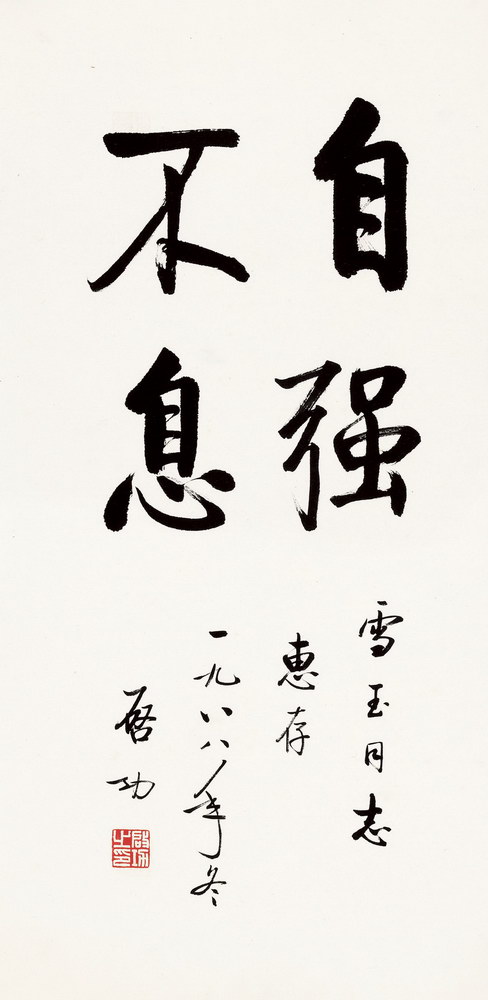 自强
不息
雪玉同志
惠存
一九八八年冬
启功
启功之印